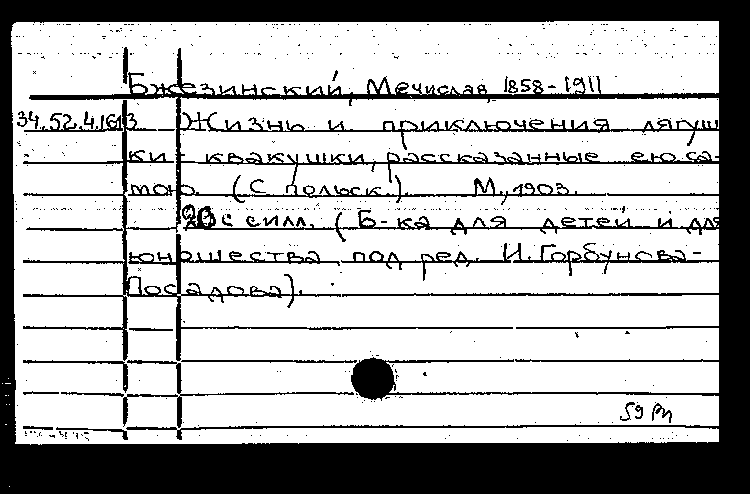 Бжезинский, Мечислав, 1858-1911
34.52.4.1613 Жизнь и приключения лягуш
ки - квакушки, рассказанные ею са-
мою. (С польск.). М., 1903.
с силл. (Б-ка для детей и для
юношества под ред. И. Горбунова-
Посадова).
59